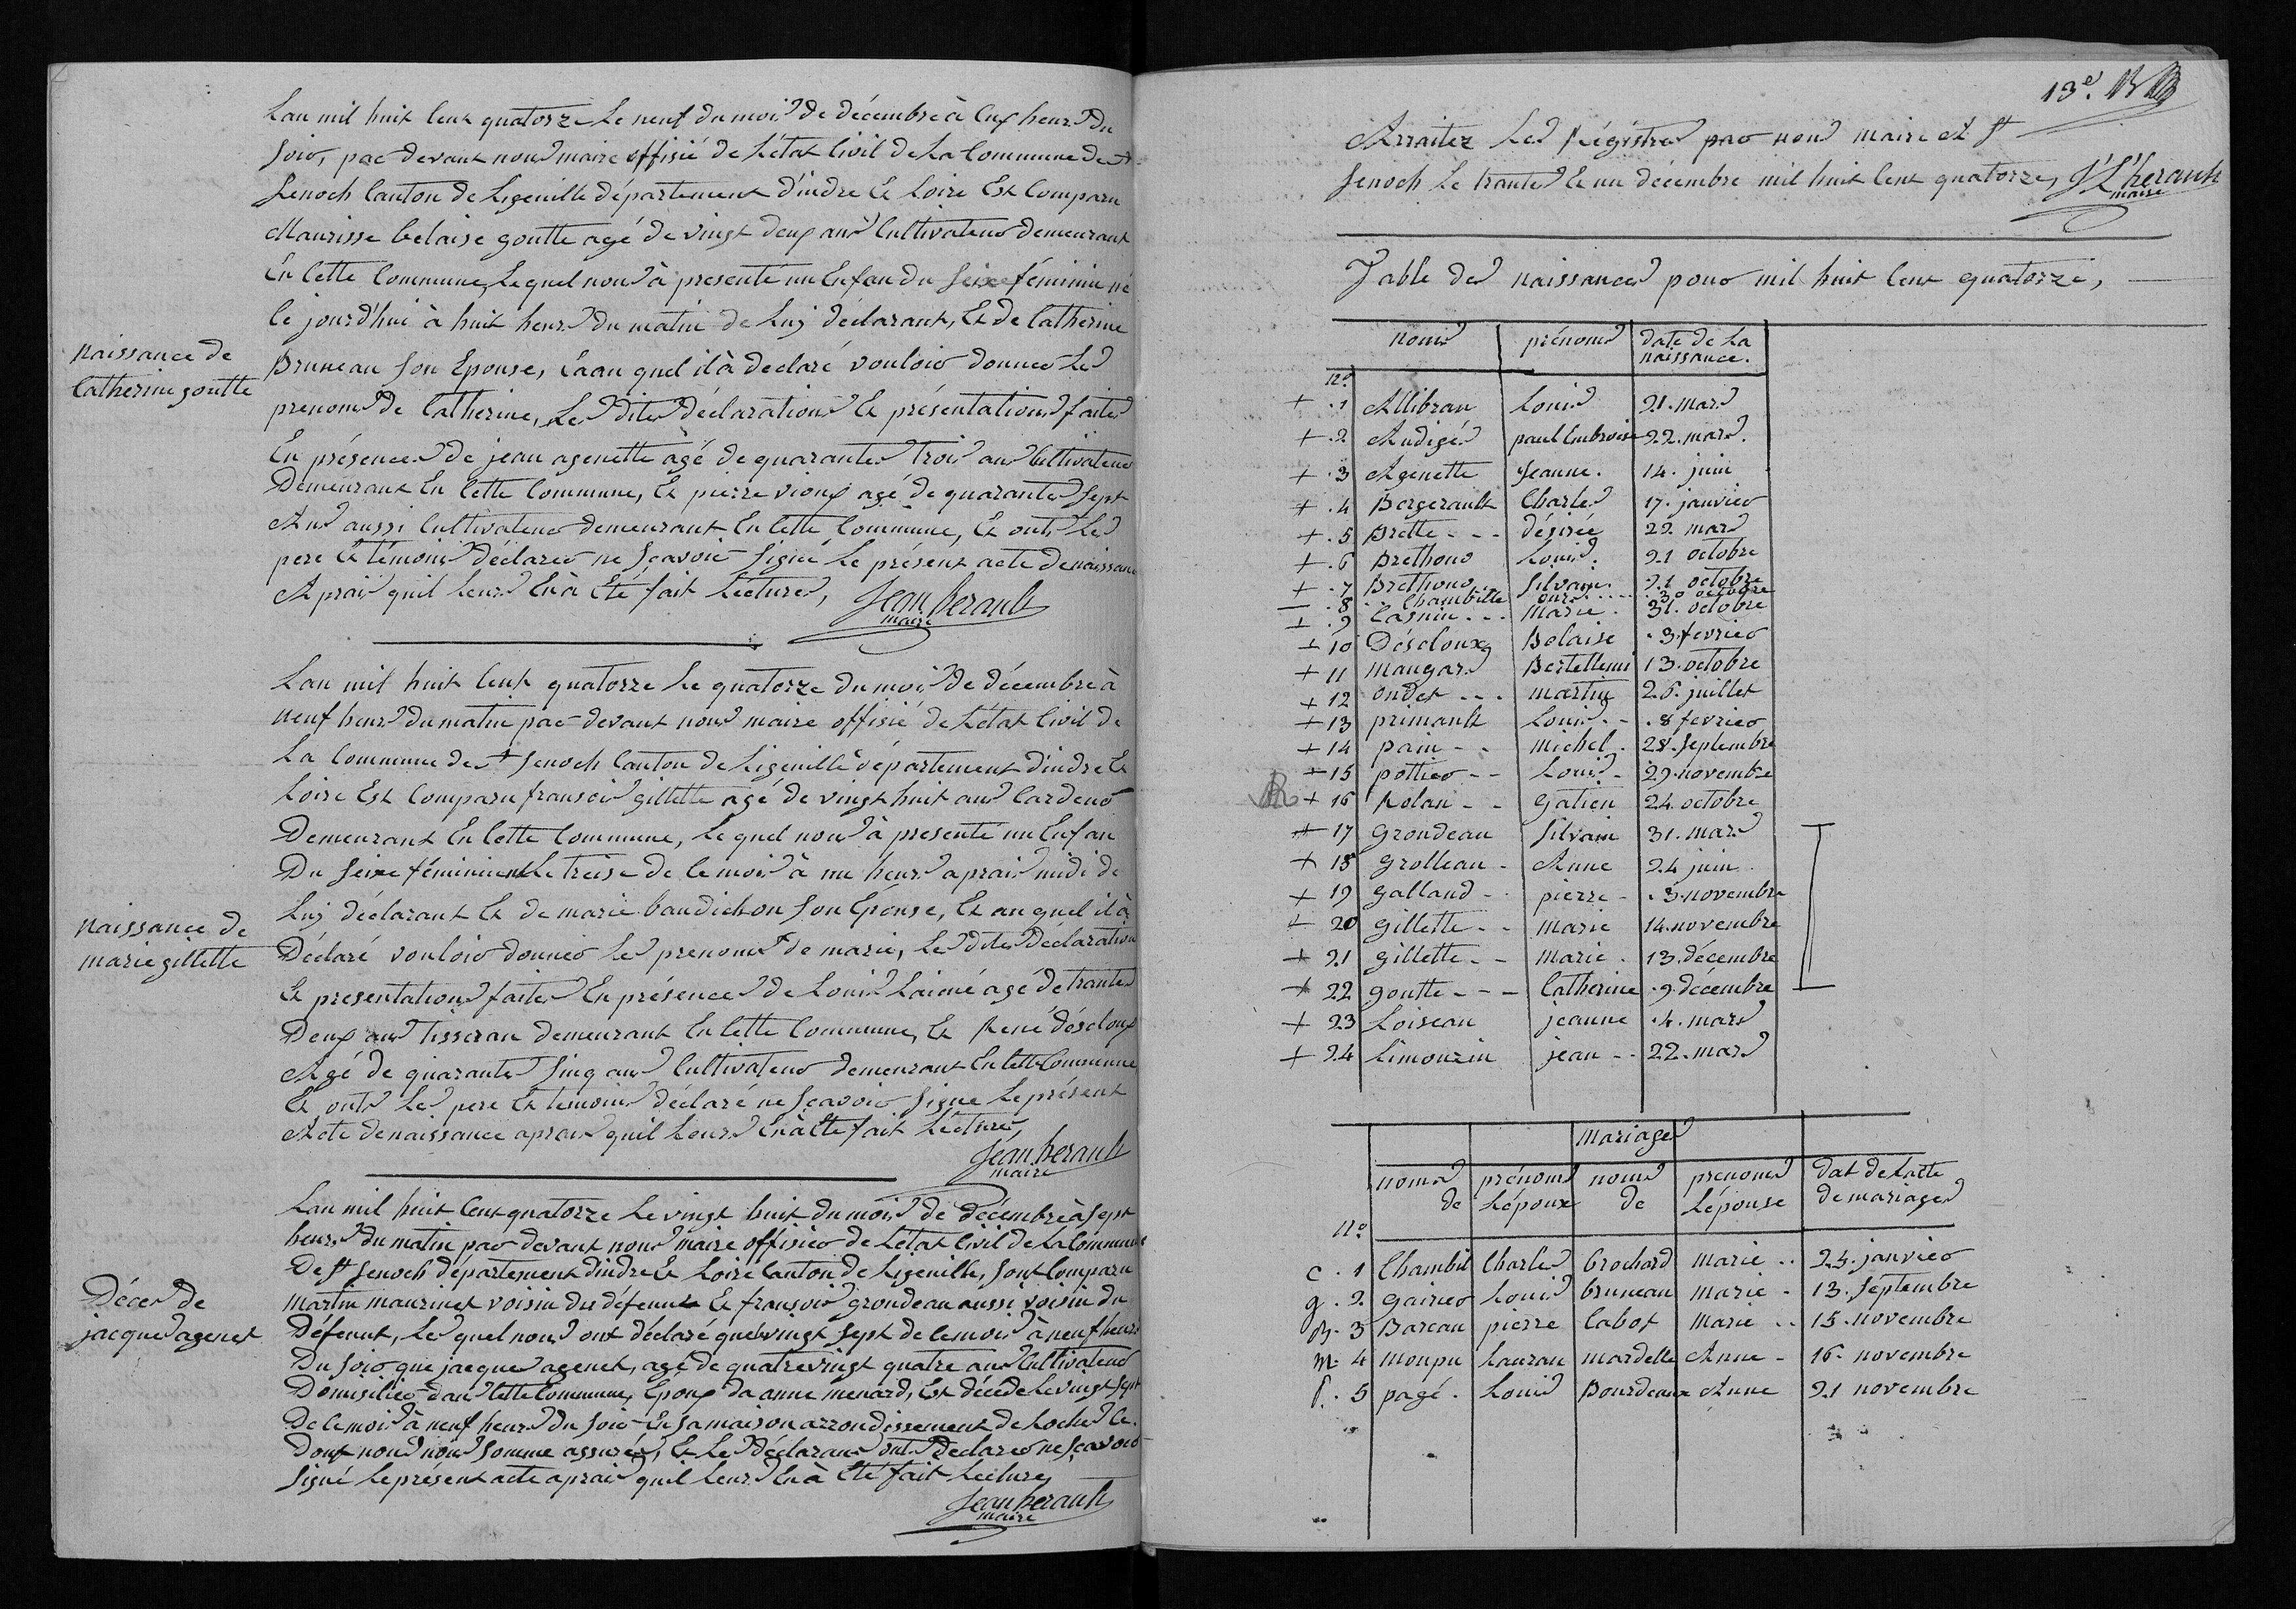 Lan mil huit Cent quatorze Le neuf du mois de décembre à Cinq heurs du
soir, par devant nous maire offisié de L'état Civil de La Commune de st
Senoch Canton de Ligeuille département d'indre Et Loire Est Comparu
Maurisse belaise goutte agé de vingt deux ans Cultivateur demeurant
En Cette Commune, Lequel nous à presenté un Enfan du seixe féminin né
Ce jourd'hui à huit heurs du matin de Luy déclarant, Et de Catherine
naissance de
Catherine goutte
Bruneau son Epouse, Et au quel il à declaré vouloir donner Les
prenoms de Catherine, Les dites déclarations Et présentations faites
En présences de jean agenette àgé de quarantes trois ans Cultivateur
Demeurant En Cette Commune, Et pierre vioux agé de quarantes sept
Ans aussi Cultivateur demeurant En Cette Commune, Et onts Les
pere Et témoins déclarer ne sçavoir signé Le présent acte de naissance
Aprais quil Leurs En à Eté fait Lectures,
Jean herault
maire
Lan mil huit Cent quatorze Le quatorze du mois de décembre à
neuf heurs du matin par devant nous maire offisié de L'état Civil de
La Commune de st Senoch Canton de Ligeuille département d'indre Et
Loire Est Comparu fransois gillette agé de vingt huit ans Cardeur
Demeurant En Cette Commune, Le quel nous à presenté un Enfan
Du seixe féminien né Le treise de Ce mois à une heurs aprais midi de
Luy déclarant Et de marie baudichon son Épouse, Et au quel il à
naissance de
marie gillette
Déclaré vouloir donner Les prenoms de marie, Les dites déclaration
Et presentations faites En présences de Louis Lainé àgé de trantes
Deux ans tisseran demeurant En Cette Commune, Et René déscloux
Agé de quarantes sinq ans Cultivateur demeurant En Cette Commune
Et onts Les pere Et temoins déclaré ne sçavoir signe Le présent
Acte de naissance aprais quil Leurs En à Eté fait Lectures,
Jean herault
maire
Lan mil huit Cent quatorze Le vingt huit du mois de décembre à sept
heurs du matin par devant nous maire offisier de L'état Civil de La Commune
De st Senoch département d'indre Et Loire Canton de Ligeuille, sont Comparu
Décès de
jacque agenet
martin maurinet voisin du défeunt Et fransois grondeau aussi voisin du
Défeunt, Les quel nous ont déclaré que le vingt sept de Ce mois à neuf heurs
Du soir que jacques agenet, agé de quatre vingt quatre ans Cultivateur
Domisilier dans Cette Commune, Epoux da anne menard, Est décédé Le vingt sept
De Ce mois à neuf heurs du soir En sa maison arrondissement de Loches Ce
Dont nous nous somme assurés, Et Les déclarans onts déclarer ne sçavoir
signé Le présent acte aprais quil Leurs En à Eté fait Lecture,
Jean herault
maire
13e.
Arraitez Les Régistres par nous maire de st
Senoch Le trantes Et un décembre mil huit Cent quatorze, J L'herault
maire
Table des naissances pour mil huit Cent quatorze,
noms prénoms date de La naissance.
no
+ 1 Allibran Louis 21. mars
+ 2 Audigés paul Embroise 22. mars.
+ 3 Agenette Jeanne. 14. juin
+ 4 Bergerault Charles 17. janvier
+ 5 Brette désirée 22. mars
+ 6 Brethono Louis. 21 octobre
+ 7 Brethono silvain. 21 octobre
8 Chambille 30 octobre
+ 9 Casnin marie. 31. octobre
+ 10 Déscloux Belaise 3. fevrier
+ 11 maugars Bertellemi 13. octobre
+ 12 ondet martin 26. juillet
+ 13 primault Louis 8 fevrier
+ 14 pain michel 28. septembre
+ 15 pottier Louis 29. novembre
+ 16 Rolan gatien 24. octobre
+ 17 grondeau silvain 31. mars
+ 18 grolleau Anne 24 juin
+ 19 galland pierre 3. novembre
+ 20 gillette marie 14. novembre
+ 21 gillette marie 13. décembre
+ 22 goutte Catherine 9. décembre
+ 23 Loiseau jeanne 4. mars
+ 24 Limouzin jean 22. mars
mariages
noms de prénoms Lépoux noms de prenoms Lépouse dat de Lacte de mariages
no
C. 1 Chambil Charles brochard marie 24. janvier
g. 2 gairier Louis bruneau marie 13. septembre
B. 3 Bareau pierre Cabot marie 15. novembre
m. 4 monpu Lauran mardelle Anne 16. novembre
p. 5 pagé. Louis Bourdeaux Anne 21 novembre